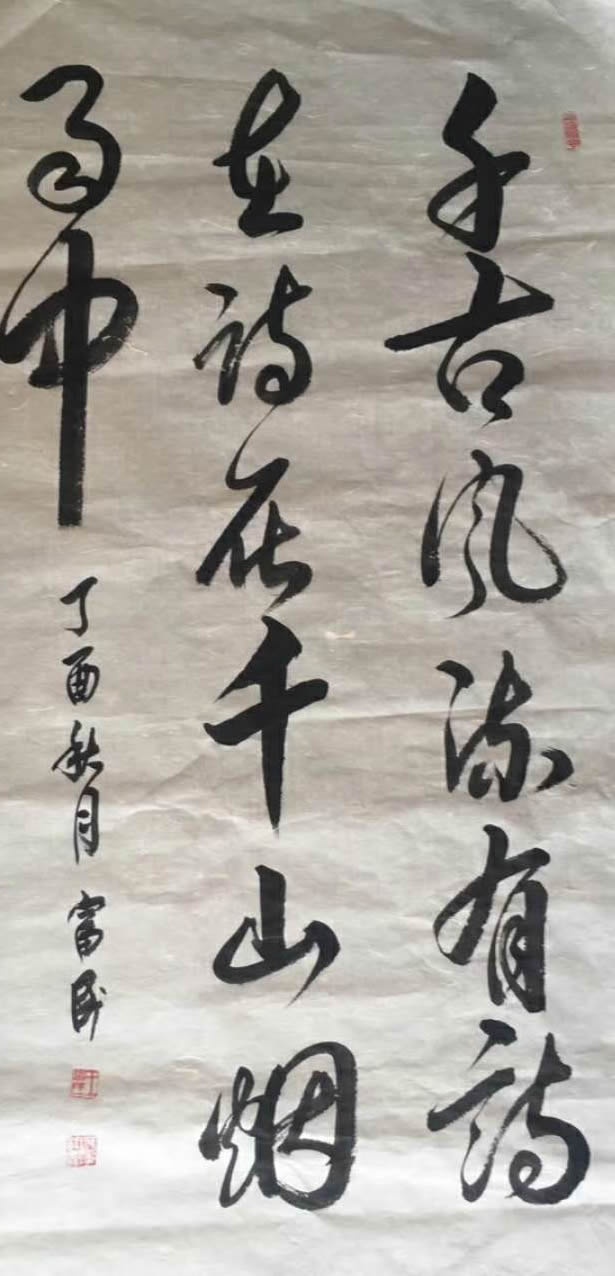 千古风流有诗
在诗在千山烟
雨中
丁酉秋月 富民